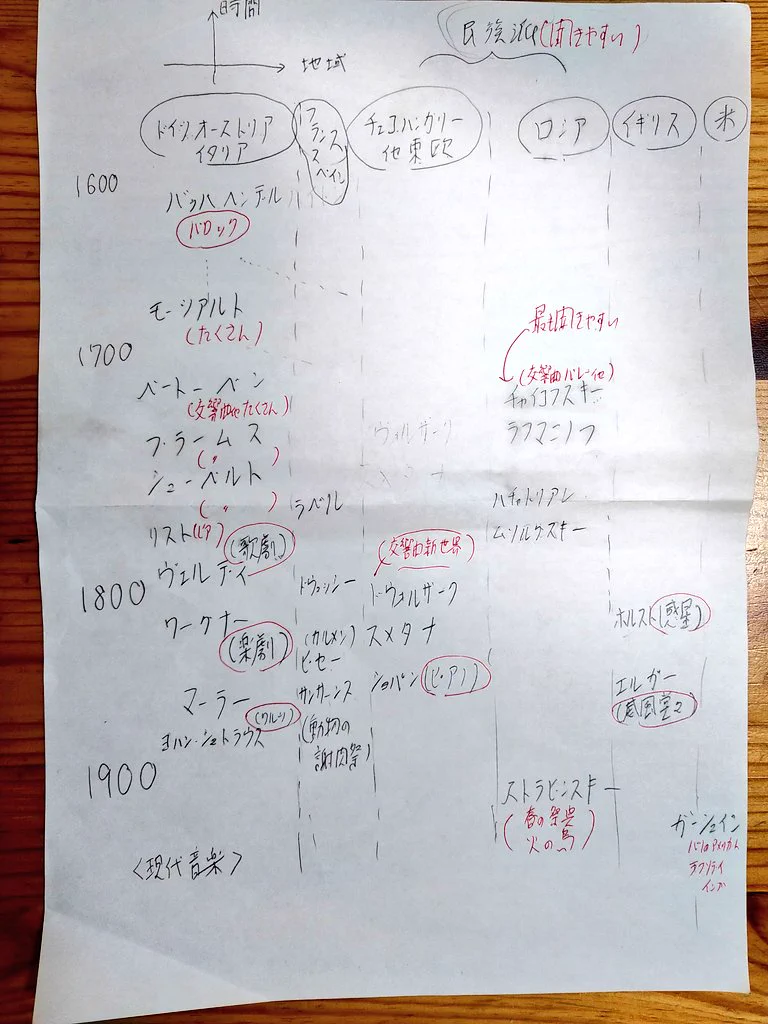 時間
地域
民族派(聞きやすい)
ドイツ,オーストリア
イタリア
フランス
スペイン
チェコハンガリー
他東欧
ロシア
イギリス
米
1600
バッハ ヘンデル
バロック
モーツアルト
(たくさん)
1700
最も聞きやすい
(交響曲バレー他)
チャイコフスキー
ベートーベン
(交響曲他たくさん)
ブラームス
(〃)
ヴォルザーク
ラフマニノフ
シューベルト
(〃)
スメタナ
ラベル
ハチャトリアン
リスト(ピア)
(歌劇)
(交響曲新世界)
ムソルグスキー
ヴェルディ
1800
ドヴッシー
ドヴォルザーク
ホルスト(惑星)
ワーグナー
(楽劇)
(カルメン)
ビゼー
スメタナ
マーラー
サンサーンス
(動物の
謝肉祭)
ショパン(ピアノ)
エルガー
(威風堂々)
(ワルツ)
ヨハン・シュトラウス
1900
ストラビンスキー
(春の祭典
火の鳥)
ガーシュイン
パリのアメリカ人
ラプソディ
イン
<現代音楽>